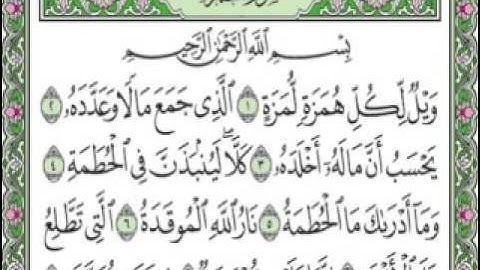 بِسْمِ اللَّهِ الرَّحْمَٰنِ الرَّحِيمِ
وَيْلٌ لِّكُلِّ هُمَزَةٍ لُّمَزَةٍ ١ الَّذِى جَمَعَ مَالًا وَعَدَّدَهُۥ ٢
يَحْسَبُ أَنَّ مَالَهُۥٓ أَخْلَدَهُۥ ٣ كَلَّا ۖ لَيُنۢبَذَنَّ فِى الْحُطَمَةِ ٤
وَمَآ أَدْرَىٰكَ مَا الْحُطَمَةُ ٥ نَارُ اللَّهِ الْمُوقَدَةُ ٦ الَّتِى تَطَّلِعُ